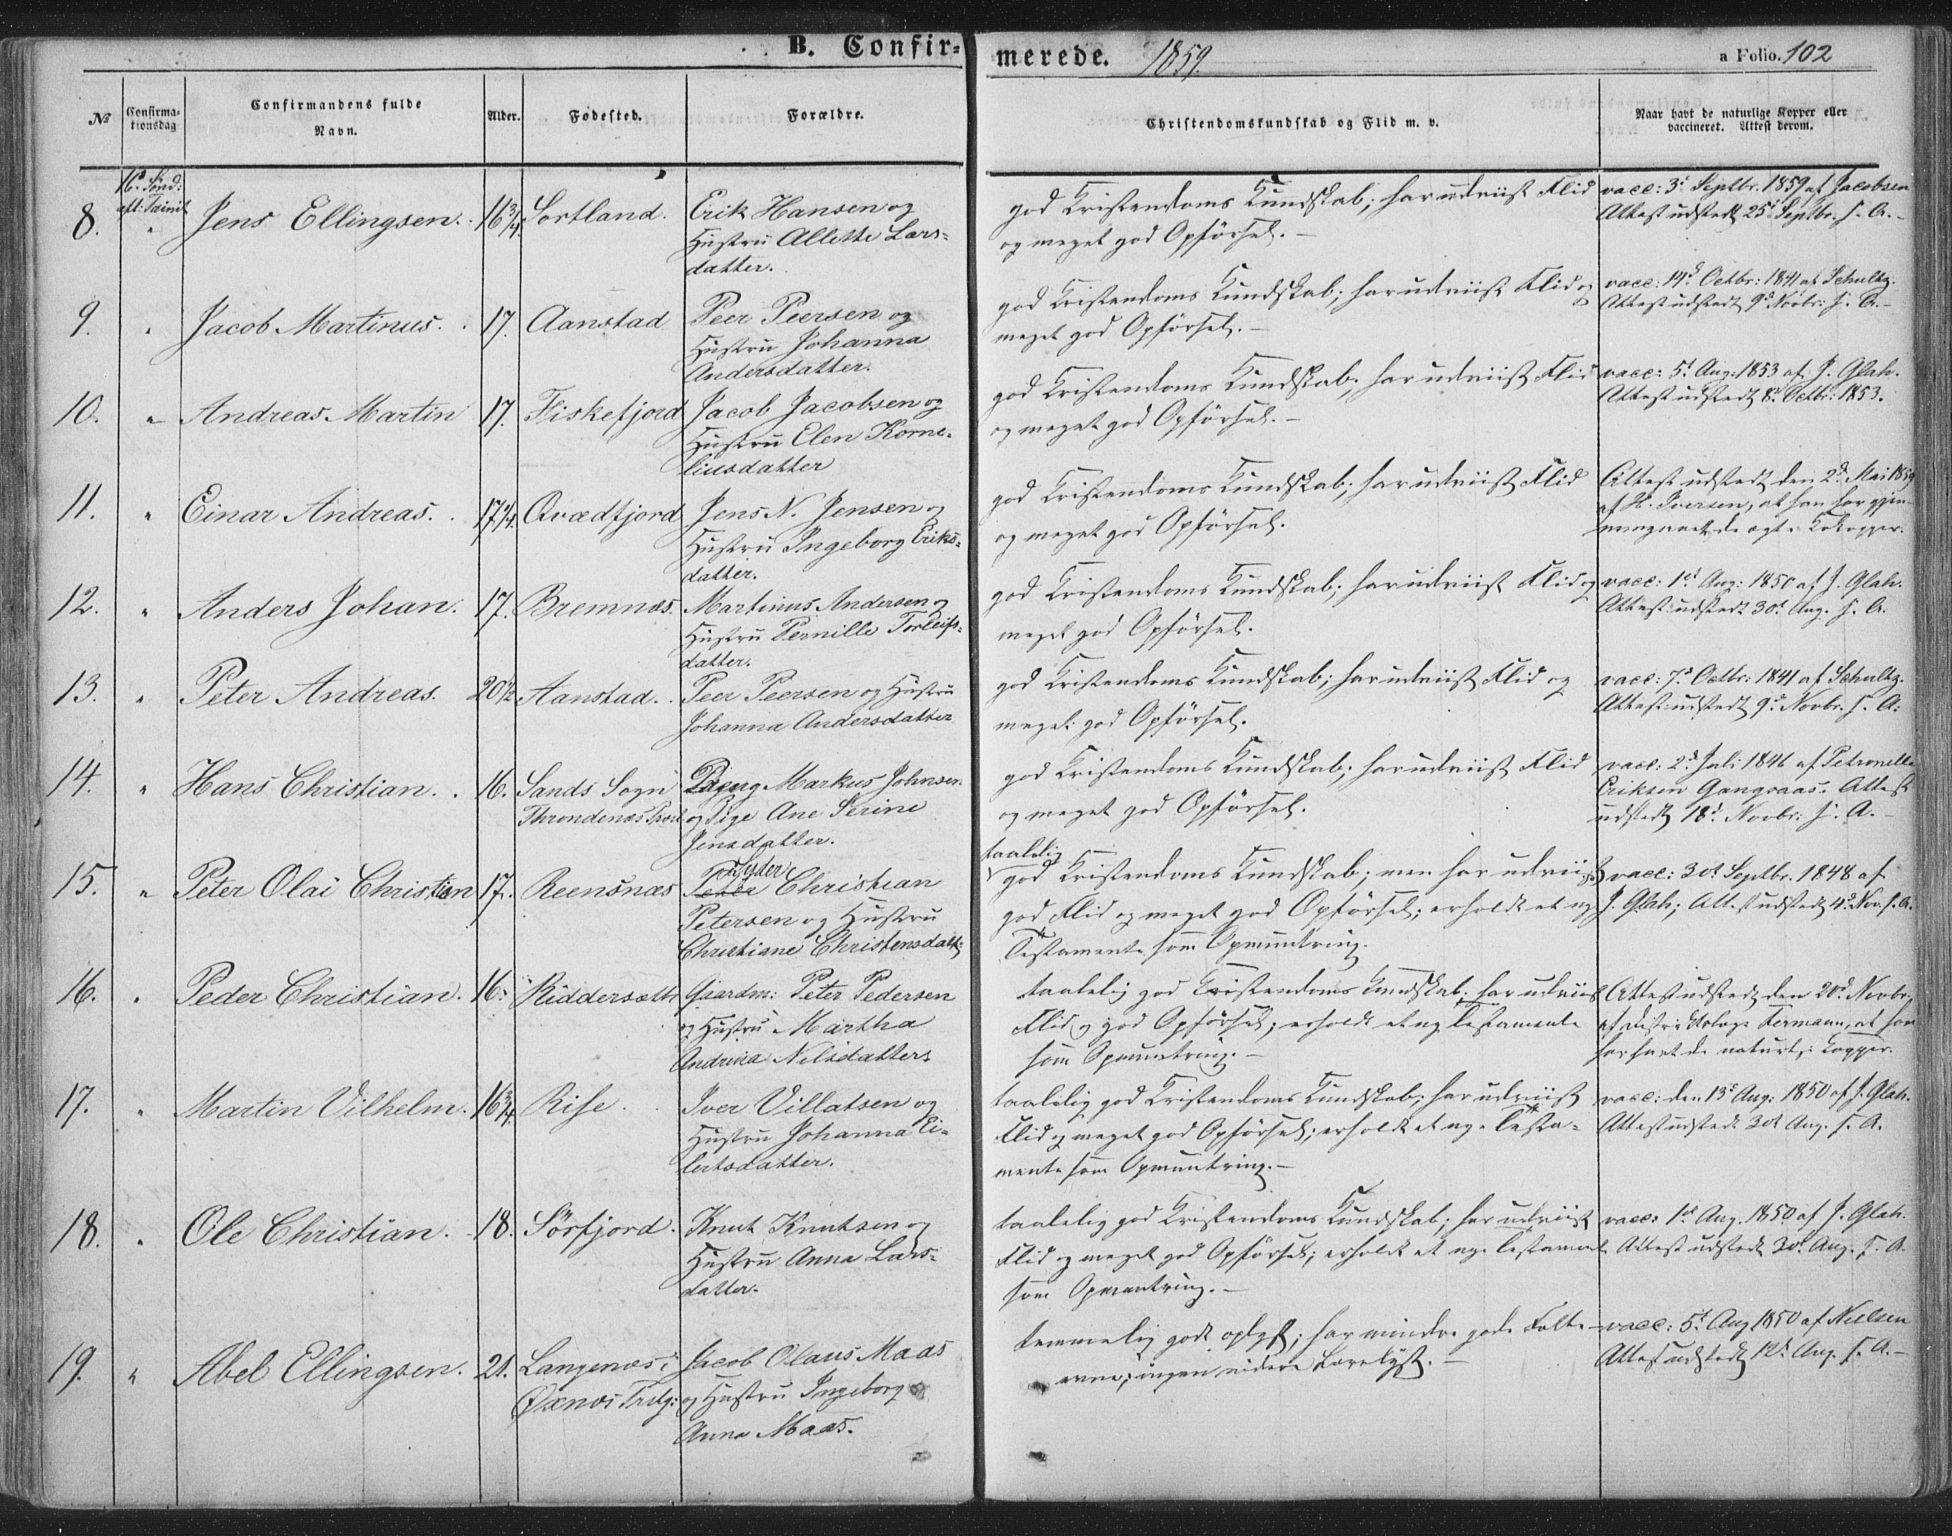 B. Confirmerede. 1859.
a Folio. 102
№
Confirmationsdag
Confirmandens fulde Navn.
Alder.
Fødested.
Forældre.
Christendomskundskab og Flid m. v.
Naar havt de naturlige Kopper eller vaccineret. Attest derom.
16d Sønd:
aft: Trinit
8. " Jens Ellingsen. 16 3/4 Sortland. Erik Hansen og
Hustru Allette Lars-
datter.
god Kristendoms Kundskab; har udviist Flid
og meget god Opførsel. —
vacc: 3d Septbr. 1859 af Jacobsen
Attest udstedt 25d Septbr. s. A. —
9. " Jacob Martinus. 17. Aanstad Peer Peersen og
Hustru Johanna
Andersdatter.
god Kristendoms Kundskab; har udviist Flid og
meget god Opførsel. —
vacc: 14d Octbr: 1841 af Schultz.
Attest udstedt 9d Novbr: s. A. —
10. " Andreas Martin 17. Fiskefjord Jacob Jacobsen og
Hustru Elen Korne-
liusdatter
god Kristendoms Kundskab; har udviist Flid
og meget god Opførsel. —
vacc: 5d Aug: 1853 af J. Glah.
Attest udstedt 8d Octbr: 1853.
11. " Einar Andreas. 17 1/4. Qvædfjord Jens N. Jensen og
Hustru Ingeborg Eriks-
datter.
god Kristendoms Kundskab; har udviist Flid
og meget god Opførsel.
Attest udstedt den 2d Mai 1859
af H. Iversen, at han har gjen-
nemgaaet de ægte Kokopper.
12. " Anders Johan. 17. Bremnæs. Martinus Andersen og
Hustru Pernille Torleifs-
datter.
god Kristendoms Kundskab; har udviist Flid og
meget god Opførsel.
vacc: 1st Aug: 1850 af J. Glah.
Attest udstedt 30d Aug. s. A.
13. " Peter Andreas. 20 1/2 Aanstad. Peer Peersen og Hustru
Johanna Andersdatter
god Kristendoms Kundskab; har udviist Flid og
meget god Opførsel.
vacc: 7d Octbr: 1841 af Schultz.
Attest udstedt 9d Novbr. s. A:
14. " Hans Christian. 16. Sands Sogn Markus Johnsen
Throndenæs og Pige Ane Serine
Jensdatter.
god Kristendoms Kundskab; har udviist Flid
og meget god Opførsel.
vacc: 2d Juli 1846 af Petronelle
Eriksen Gangsaas. Attest
udstedt 18d Novbr: s. A. —
15. " Peter Olai Christian 17. Reensnæs Christian
Petersen og Hustru
Christiane Christensdatt:
taalelig
god Kristendoms Kundskab; men har udviist
god Flid og meget god Opførsel; erholdt et nyt
Testamente som Opmuntring.
vacc: 30d Septbr. 1848 af
J. Glah; Attest udstedt 4d Nov. s. A.
16. " Peder Christian. 16. Riddersæth Gaardm: Peter Pedersen
og Hustru Martha
Andrina Nilsdatter
taalelig god Kristendoms Kundskab, har udviist
Flid og god Opførsel; erholdt et nyt Testamente
som Opmuntring. —
Attest udstedt den 20d Novbr.
af Distriktslæge Kermann, at han
har havt de naturl: Kopper.
17. " Martin Vilhelm. 16 3/4. Rise. Iver Villatsen og
Hustru Johanna Ei-
lertsdatter.
taalelig god Kristendoms Kundskab; har udviist
Flid og meget god Opførsel; erholdt et nyt Testa-
mente som Opmuntring. —
vacc: den 13d Aug: 1850 af J. Glah.
Attest udstedt 30d Aug. s. A.
18. " Ole Christian. 18. Sörfjord. Knut Knutsen og
Hustru Anna Lars-
datter.
taalelig god Kristendoms Kundskab; har udviist
Flid og meget god Opførsel; erholdt et nyt Testament
som Opmuntring. —
vacc: 1st Aug. 1850 af J. Glah.
Attest udstedt 30d Aug. s. A.
19. " Abel Ellingsen. 21. Langenæs i Jacob Olaus Maas
Øxnæs Prstg: og Hustru Ingeborg
Anna Maas.
temmelig godt oplyst; har mindre gode Fatte-
evner; ingen videre Lærelyst. —
vacc: 5d Aug 1850 af Nielsen
Attest udstedt 12d Aug. s. A. —